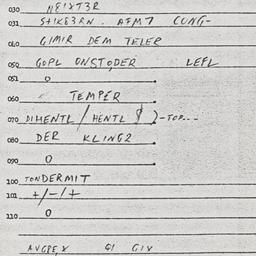 030 NEIXT3R
031 STIKE3RN. AFMT CUNG-
040 GIMIR DEM TELER
050 GOPL ONSTODER LEFL
051 0
060 TEMPÉR
070 DIMENTL / HENTL }-TOP---
080 DER KLING2
090 0
100 TONDERMIT
101 +/-/+
110 0
AVGPE,X GI GIV